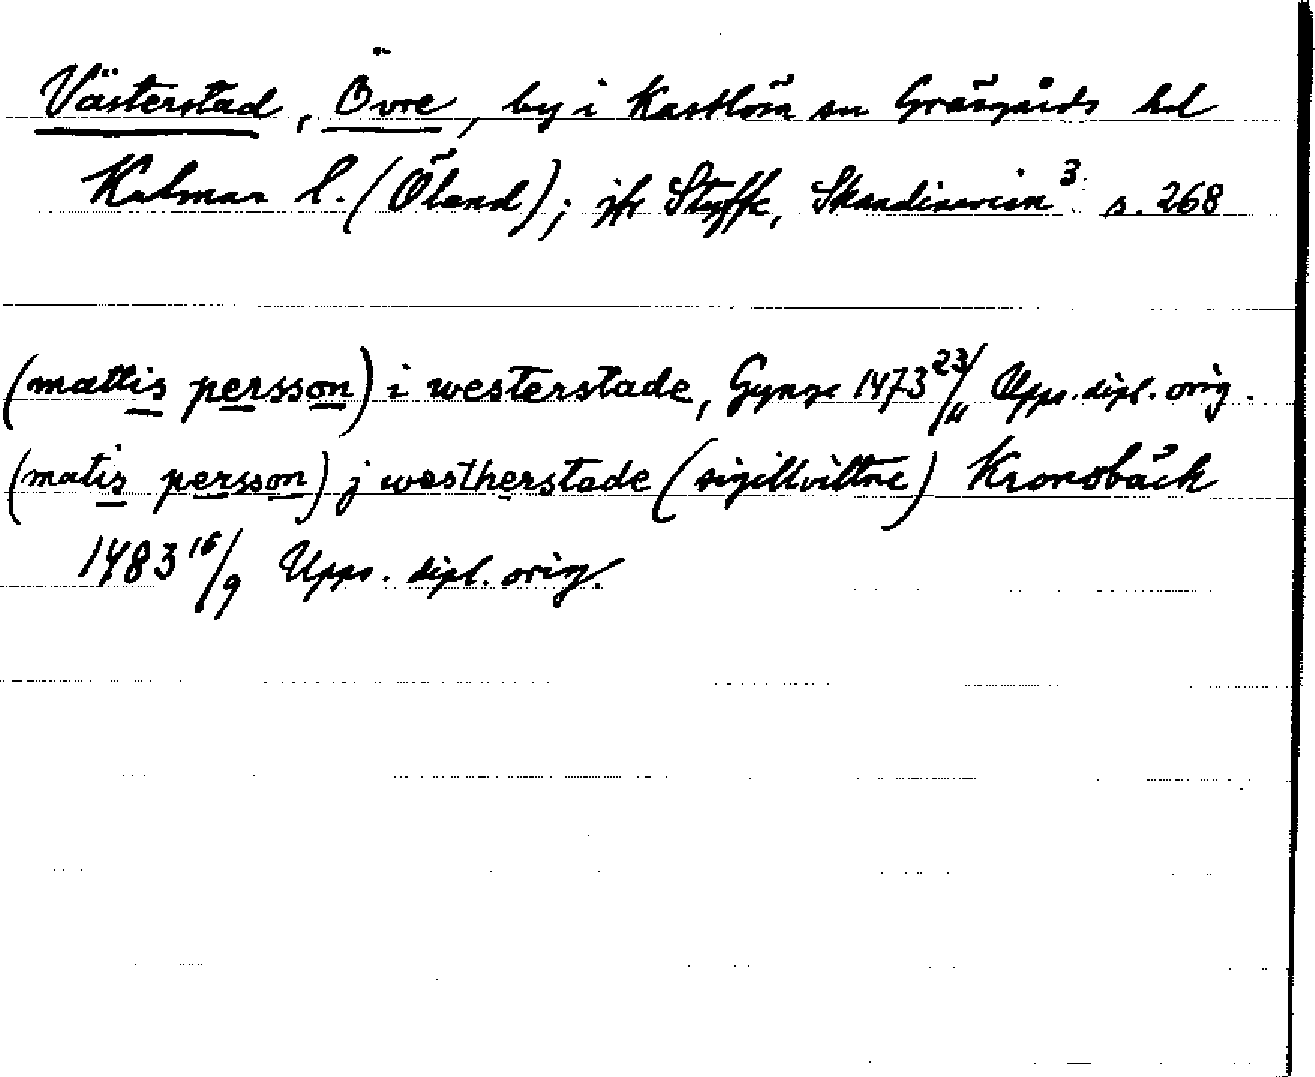 Västerstad, Övre, by i Kastlösa sn Gräsgårds hd
Kalmar l. (Öland); jfr Styffe, Skandinavien³ s. 268
(mattis persson) i westerstade, Gynge 1473 23/11 Upps. dipl. orig.
(matis persson) j westherstade (sigillvittne) Kronobäck
1483 16/9 Upps. dipl. orig.